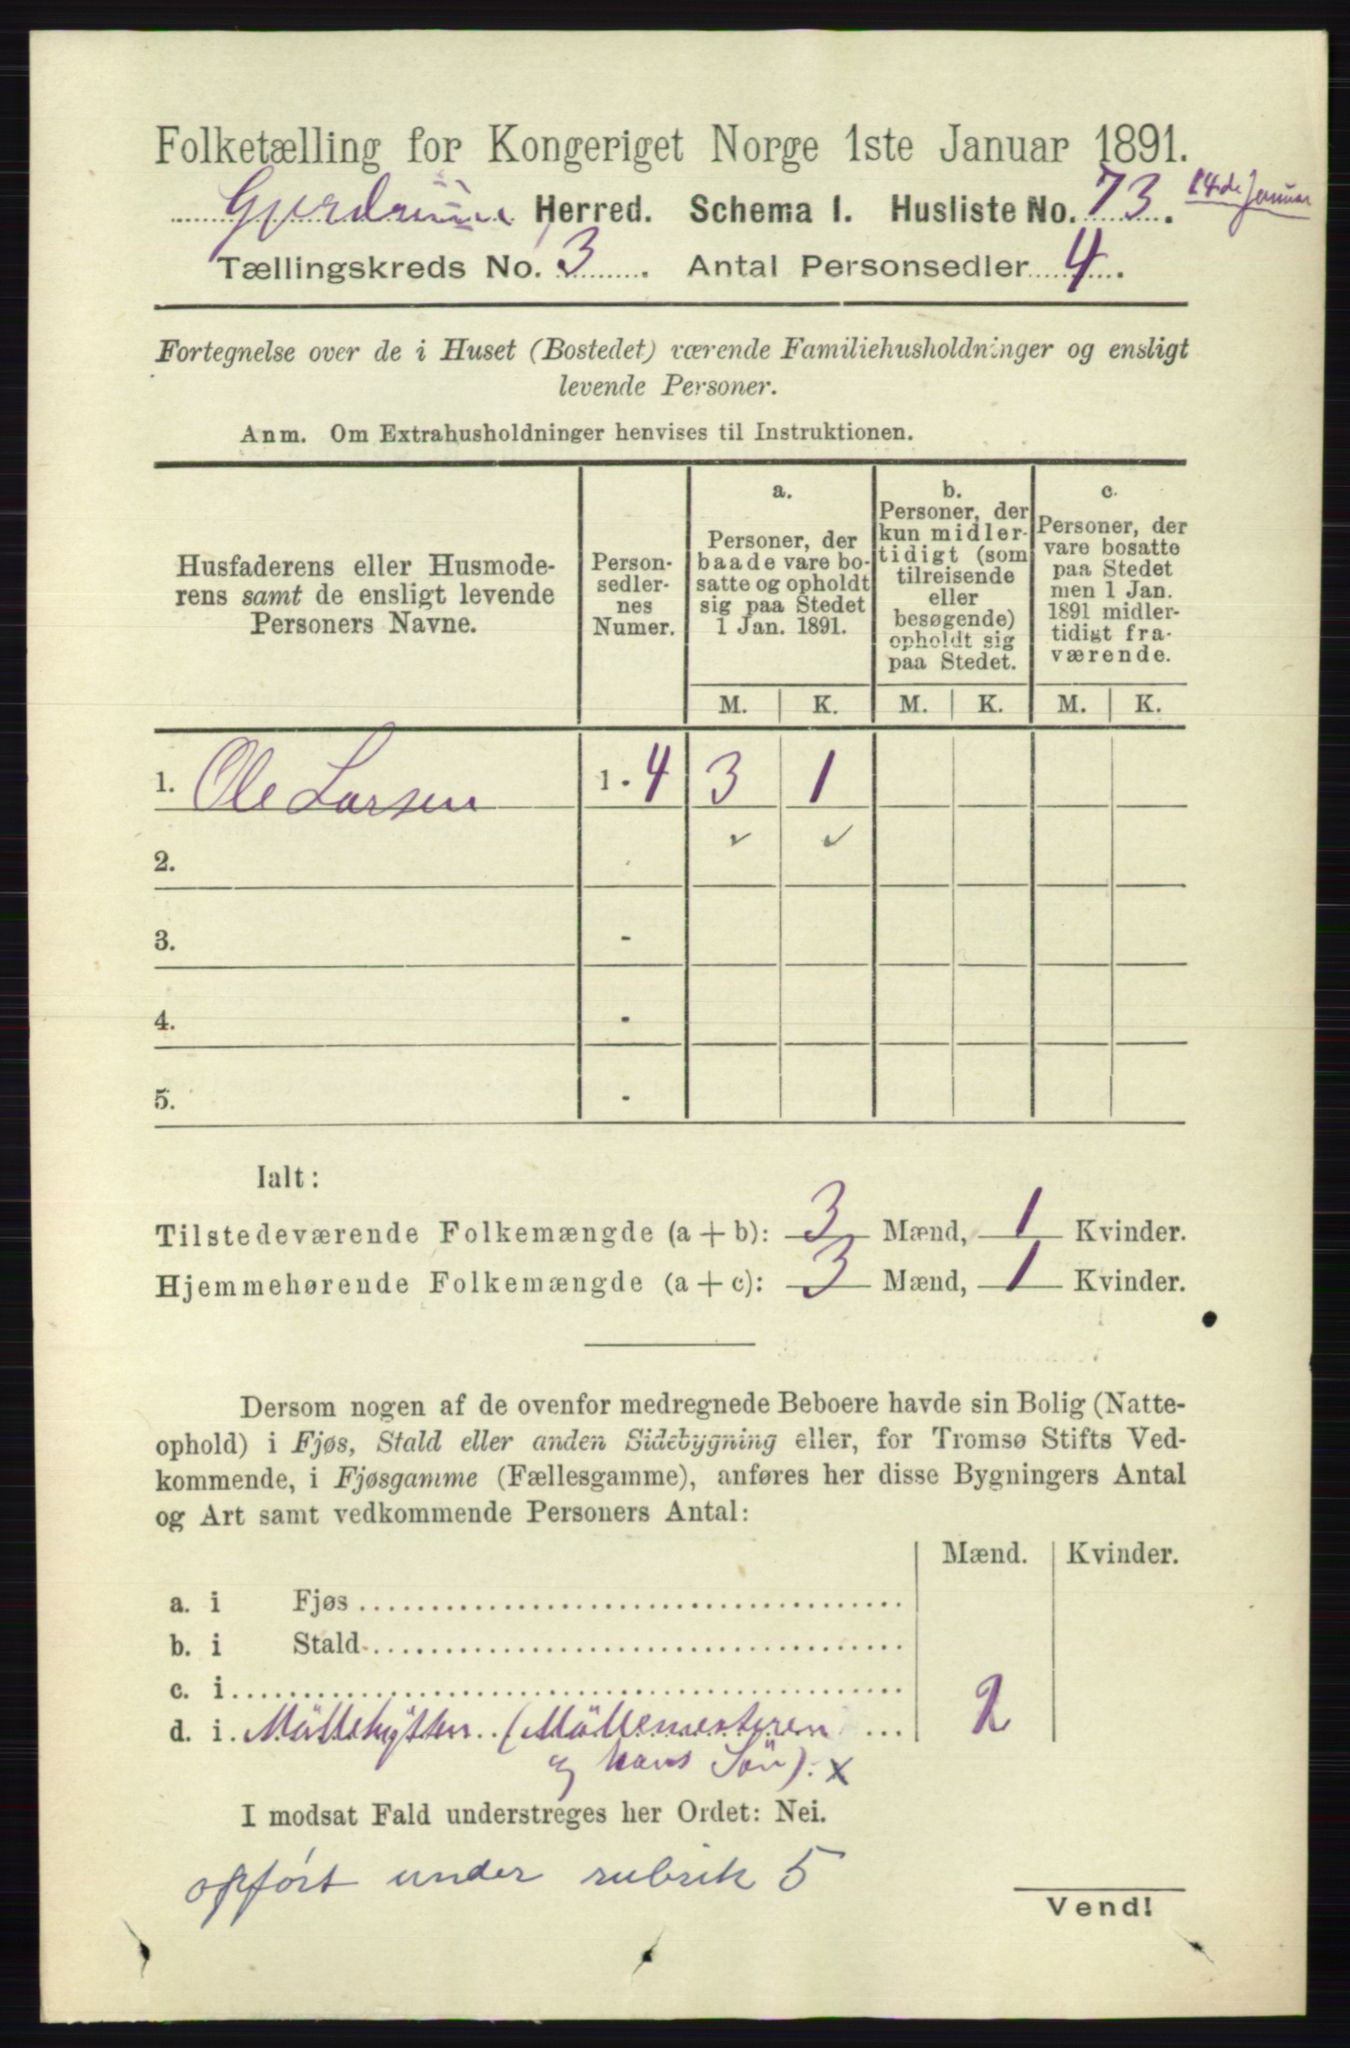 Folketælling for Kongeriget Norge 1ste Januar 1891.
14de Januar
Gjerdrum Herred. Schema I. Husliste No. 73.
Tællingskreds No. 3. Antal Personsedler 4.
Fortegnelse over de i Huset (Bostedet) værende Familiehusholdninger og ensligt
levende Personer.
Anm. Om Extrahusholdninger henvises til Instruktionen.
Husfaderens eller Husmode-
rens samt de ensligt levende
Personers Navne.
Person-
sedler-
nes
Numer.
a.
Personer, der
baade vare bo-
satte og opholdt
sig paa Stedet
1 Jan. 1891.
b.
Personer, der
kun midler-
tidigt (som
tilreisende
eller
besøgende)
opholdt sig
paa Stedet.
c.
Personer, der
vare bosatte
paa Stedet
men 1 Jan.
1891 midler-
tidigt fra-
værende.
M. K. M. K. M. K.
1. Ole Larsen 1 - 4 3 1
2. ✓ ✓
3. -
4. -
5. -
Ialt:
Tilstedeværende Folkemængde (a + b): 3 Mænd, 1 Kvinder.
Hjemmehørende Folkemængde (a + c): 3 Mænd, 1 Kvinder.
Dersom nogen af de ovenfor medregnede Beboere havde sin Bolig (Natte-
ophold) i Fjøs, Stald eller anden Sidebygning eller, for Tromsø Stifts Ved-
kommende, i Fjøsgamme (Fællesgamme), anføres her disse Bygningers Antal
og Art samt vedkommende Personers Antal:
Mænd. Kvinder.
a. i Fjøs
b. i Stald
c. i
d. i Möllehytten (Möllemesteren 2
og hans Sön). x
I modsat Fald understreges her Ordet: Nei.
opført under rubrik 5
Vend!